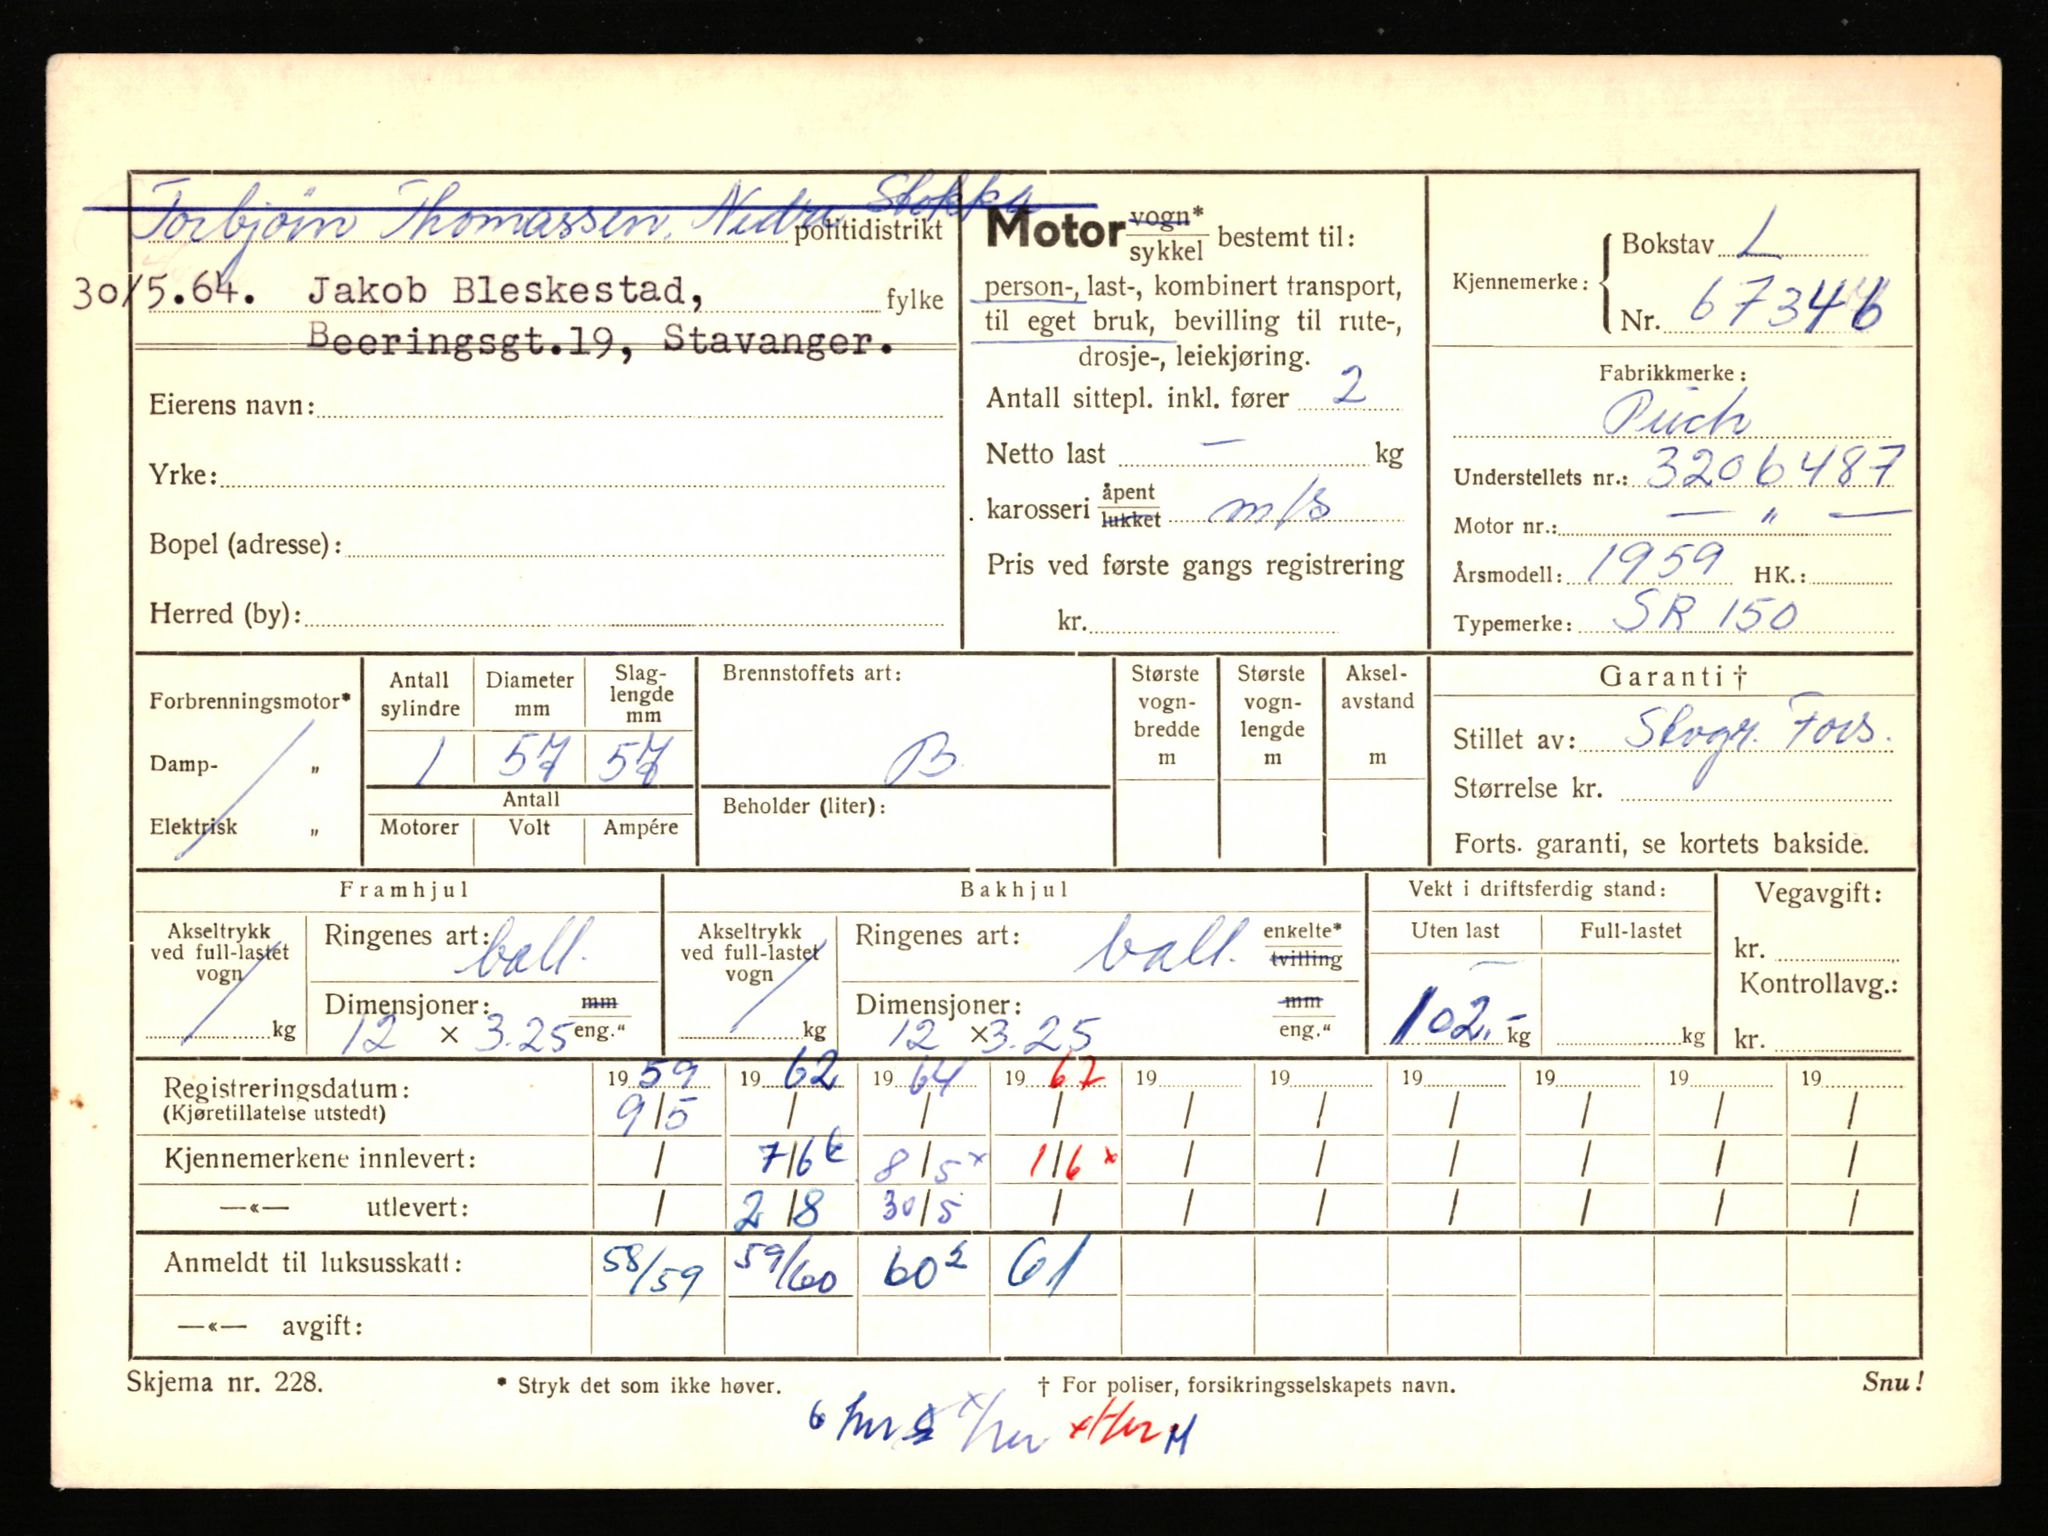 Torbjörn Thomassen, Nedre Stokka
politidistrikt
30/5.64. Jakob Bleskestad,
fylke
Beeringsgt.19, Stavanger.
Eierens navn:
Yrke:
Bopel (adresse):
Herred (by):
Motor vogn* sykkel bestemt til:
person-, last-, kombinert transport,
til eget bruk, bevilling til rute-,
drosje-, leiekjøring.
Antall sittepl. inkl. fører 2
Netto last — kg
karosseri åpent lukket m/s
Pris ved første gangs registrering
kr.
Kjennemerke: Bokstav L
Nr. 67346
Fabrikkmerke:
Puch
Understellets nr.: 3206487
Motor nr.: — " —
Årsmodell: 1959 HK.:
Typemerke: SR 150
Forbrenningsmotor*
Damp- „
Elektrisk „
Antall sylindre
Diameter mm
Slag-lengde mm
1 57 57
Antall
Motorer Volt Ampére
Brennstoffets art:
B
Beholder (liter):
Største vogn-bredde m
Største vogn-lengde m
Aksel-avstand m
Garanti †
Stillet av: Stvgr. Fors.
Størrelse kr.
Forts. garanti, se kortets bakside.
Framhjul
Akseltrykk ved full-lastet vogn
kg
Ringenes art: ball.
Dimensjoner: mm
12 × 3.25 eng."
Bakhjul
Akseltrykk ved full-lastet vogn
kg
Ringenes art: ball. enkelte* tvilling
Dimensjoner: mm
12 × 3.25 eng."
Vekt i driftsferdig stand:
Uten last Full-lastet
102,- kg kg
Vegavgift:
kr.
Kontrollavg.:
kr.
Registreringsdatum: 19 59 19 62 19 64 19 67 19 19 19 19 19 19
(Kjøretillatelse utstedt) 9/5 / / / / / / / / /
Kjennemerkene innlevert: / 7/6 8/5 x 1/6 x / / / / / /
—«— utlevert: / 2/8 30/5 / / / / / / /
Anmeldt til luksusskatt: 58/59 59/60 60 61
—«— avgift:
Skjema nr. 228. * Stryk det som ikke høver. † For poliser, forsikringsselskapets navn. Snu!